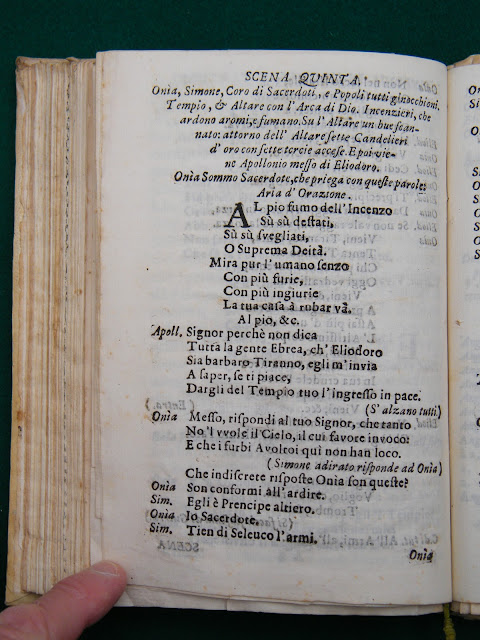 SCENA QUINTA.
Onìa, Simone, Coro di Sacerdoti, e Popoli tutti ginocchioni.
Tempio, & Altare con l'Arca di Dio. Incenzieri, che
ardono aromi, e fumano. Su l'Altare un bue scan-
nato: attorno dell' Altare sette Candelieri
d'oro con sette torcie accese. E poi vie-
ne Apollonio messo di Eliodoro.
Onìa Sommo Sacerdote, che priega con queste parole:
Aria d'Orazione.
AL pio fumo dell'Incenzo
Sù sù destati,
Sù sù svegliati,
O Suprema Deità.
Mira pur l'umano senzo
Con più furie,
Con più ingiurie
La tua casa à robar và.
Al pio, &c.
Apoll. Signor perchè non dica
Tutta la gente Ebrea, ch' Eliodoro
Sia barbaro Tiranno, egli m'invia
A saper, se ti piace,
Dargli del Tempio tuo l'ingresso in pace.
(S' alzano tutti)
Onìa Messo, rispondi al tuo Signor, che tanto
No'l vvole il Cielo, il cui favore invoco:
E che i furbi Avoltoi quì non han loco.
(Simone adirato risponde ad Onìa)
Che indiscrete risposte Onìa son queste?
Onìa Son conformi all'ardire.
Sim. Egli è Prencipe altiero.
Onìa Io Sacerdote.
Sim. Tien di Seleuco l'armi.
Onìa